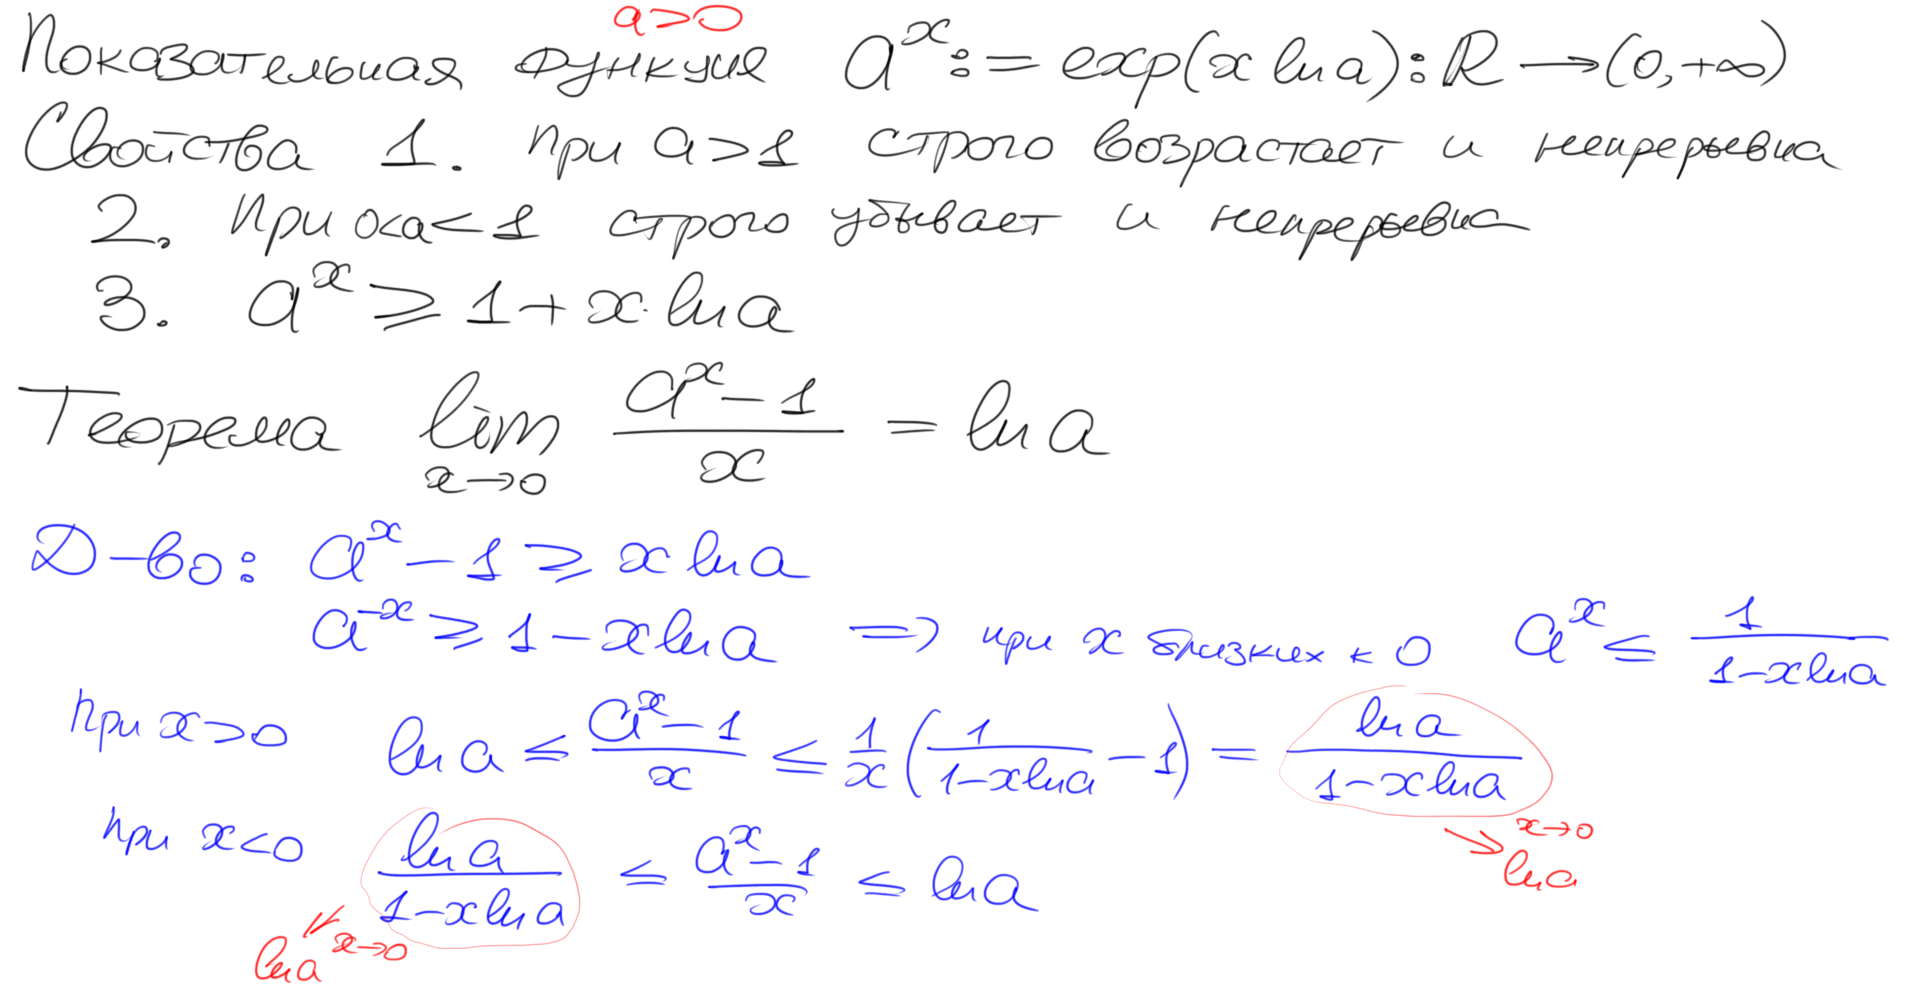 a>0
Показательная функция a^x := exp(x ln a) : ℝ → (0, +∞)
Свойства 1. При a>1 строго возрастает и непрерывна
2. При 0<a<1 строго убывает и непрерывна
3. a^x ≥ 1 + x·ln a
Теорема lim_{x→0} (a^x − 1)/x = ln a
Д-во: a^x − 1 ≥ x ln a
a^{−x} ≥ 1 − x ln a ⇒ при x близких к 0 a^x ≤ 1/(1 − x ln a)
При x>0 ln a ≤ (a^x − 1)/x ≤ 1/x (1/(1 − x ln a) − 1) = ln a/(1 − x ln a)
→ x→0
ln a
При x<0 ln a/(1 − x ln a) ≤ (a^x − 1)/x ≤ ln a
↙ x→0
ln a